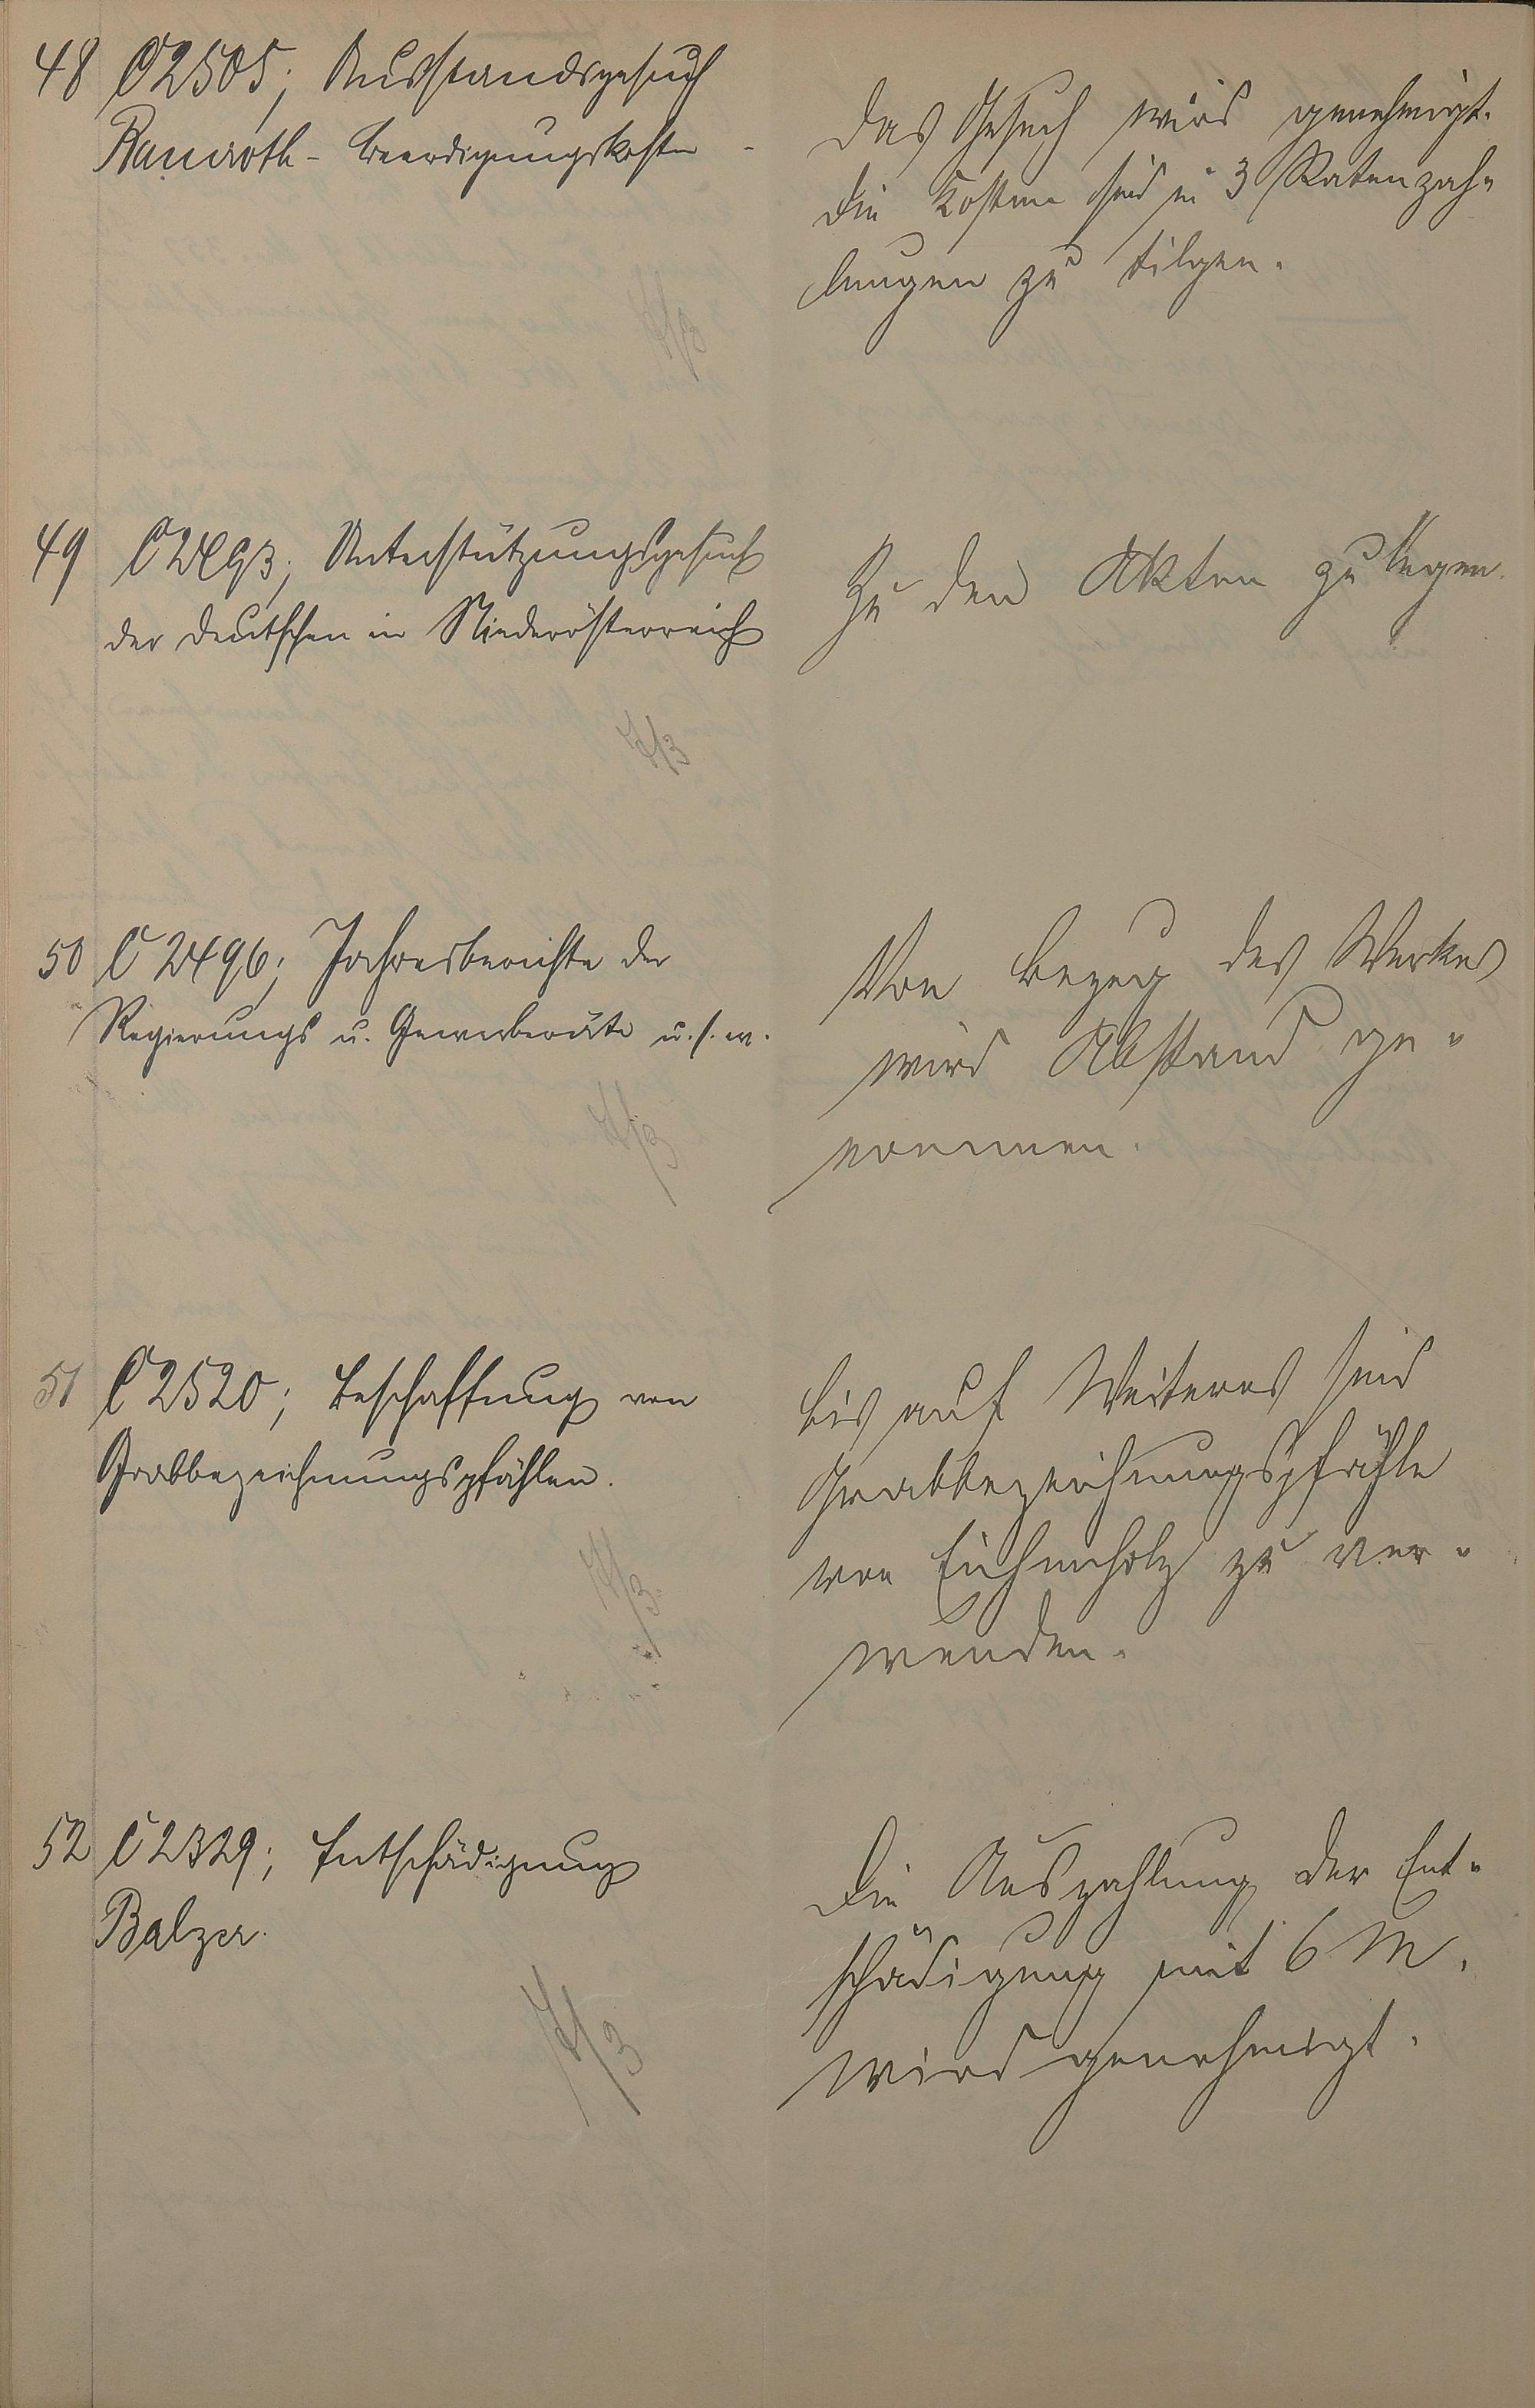 48 C 2505; Ausstandsgesuch
Ramroth - Beerdigungskosten -
Das Gesuch wird genehmigt.
Die Kosten sind in 3 Ratenzah-
lungen zu tilgen.
49 C 2493; Unterstützungsgesuch
der Deutschen in Niederösterreich
Zu den Akten zu legen.
50 C 2496; Jahresberichte der
Regierungs u. Gewerberäte u.s.w.
Von Bezug des Werkes
wird Abstand ge-
nommen.
51 C 2520; Beschaffung von
Grabbezeichnungspfählen.
Bis auf Weiteres sind
Grabbezeichnungspfähle
von Eichenholz zu ver-
wenden.
52 C 2329; Entschädigung
Balzer.
Die Auszahlung der Ent-
schädigung mit 6 M.
wird genehmigt.